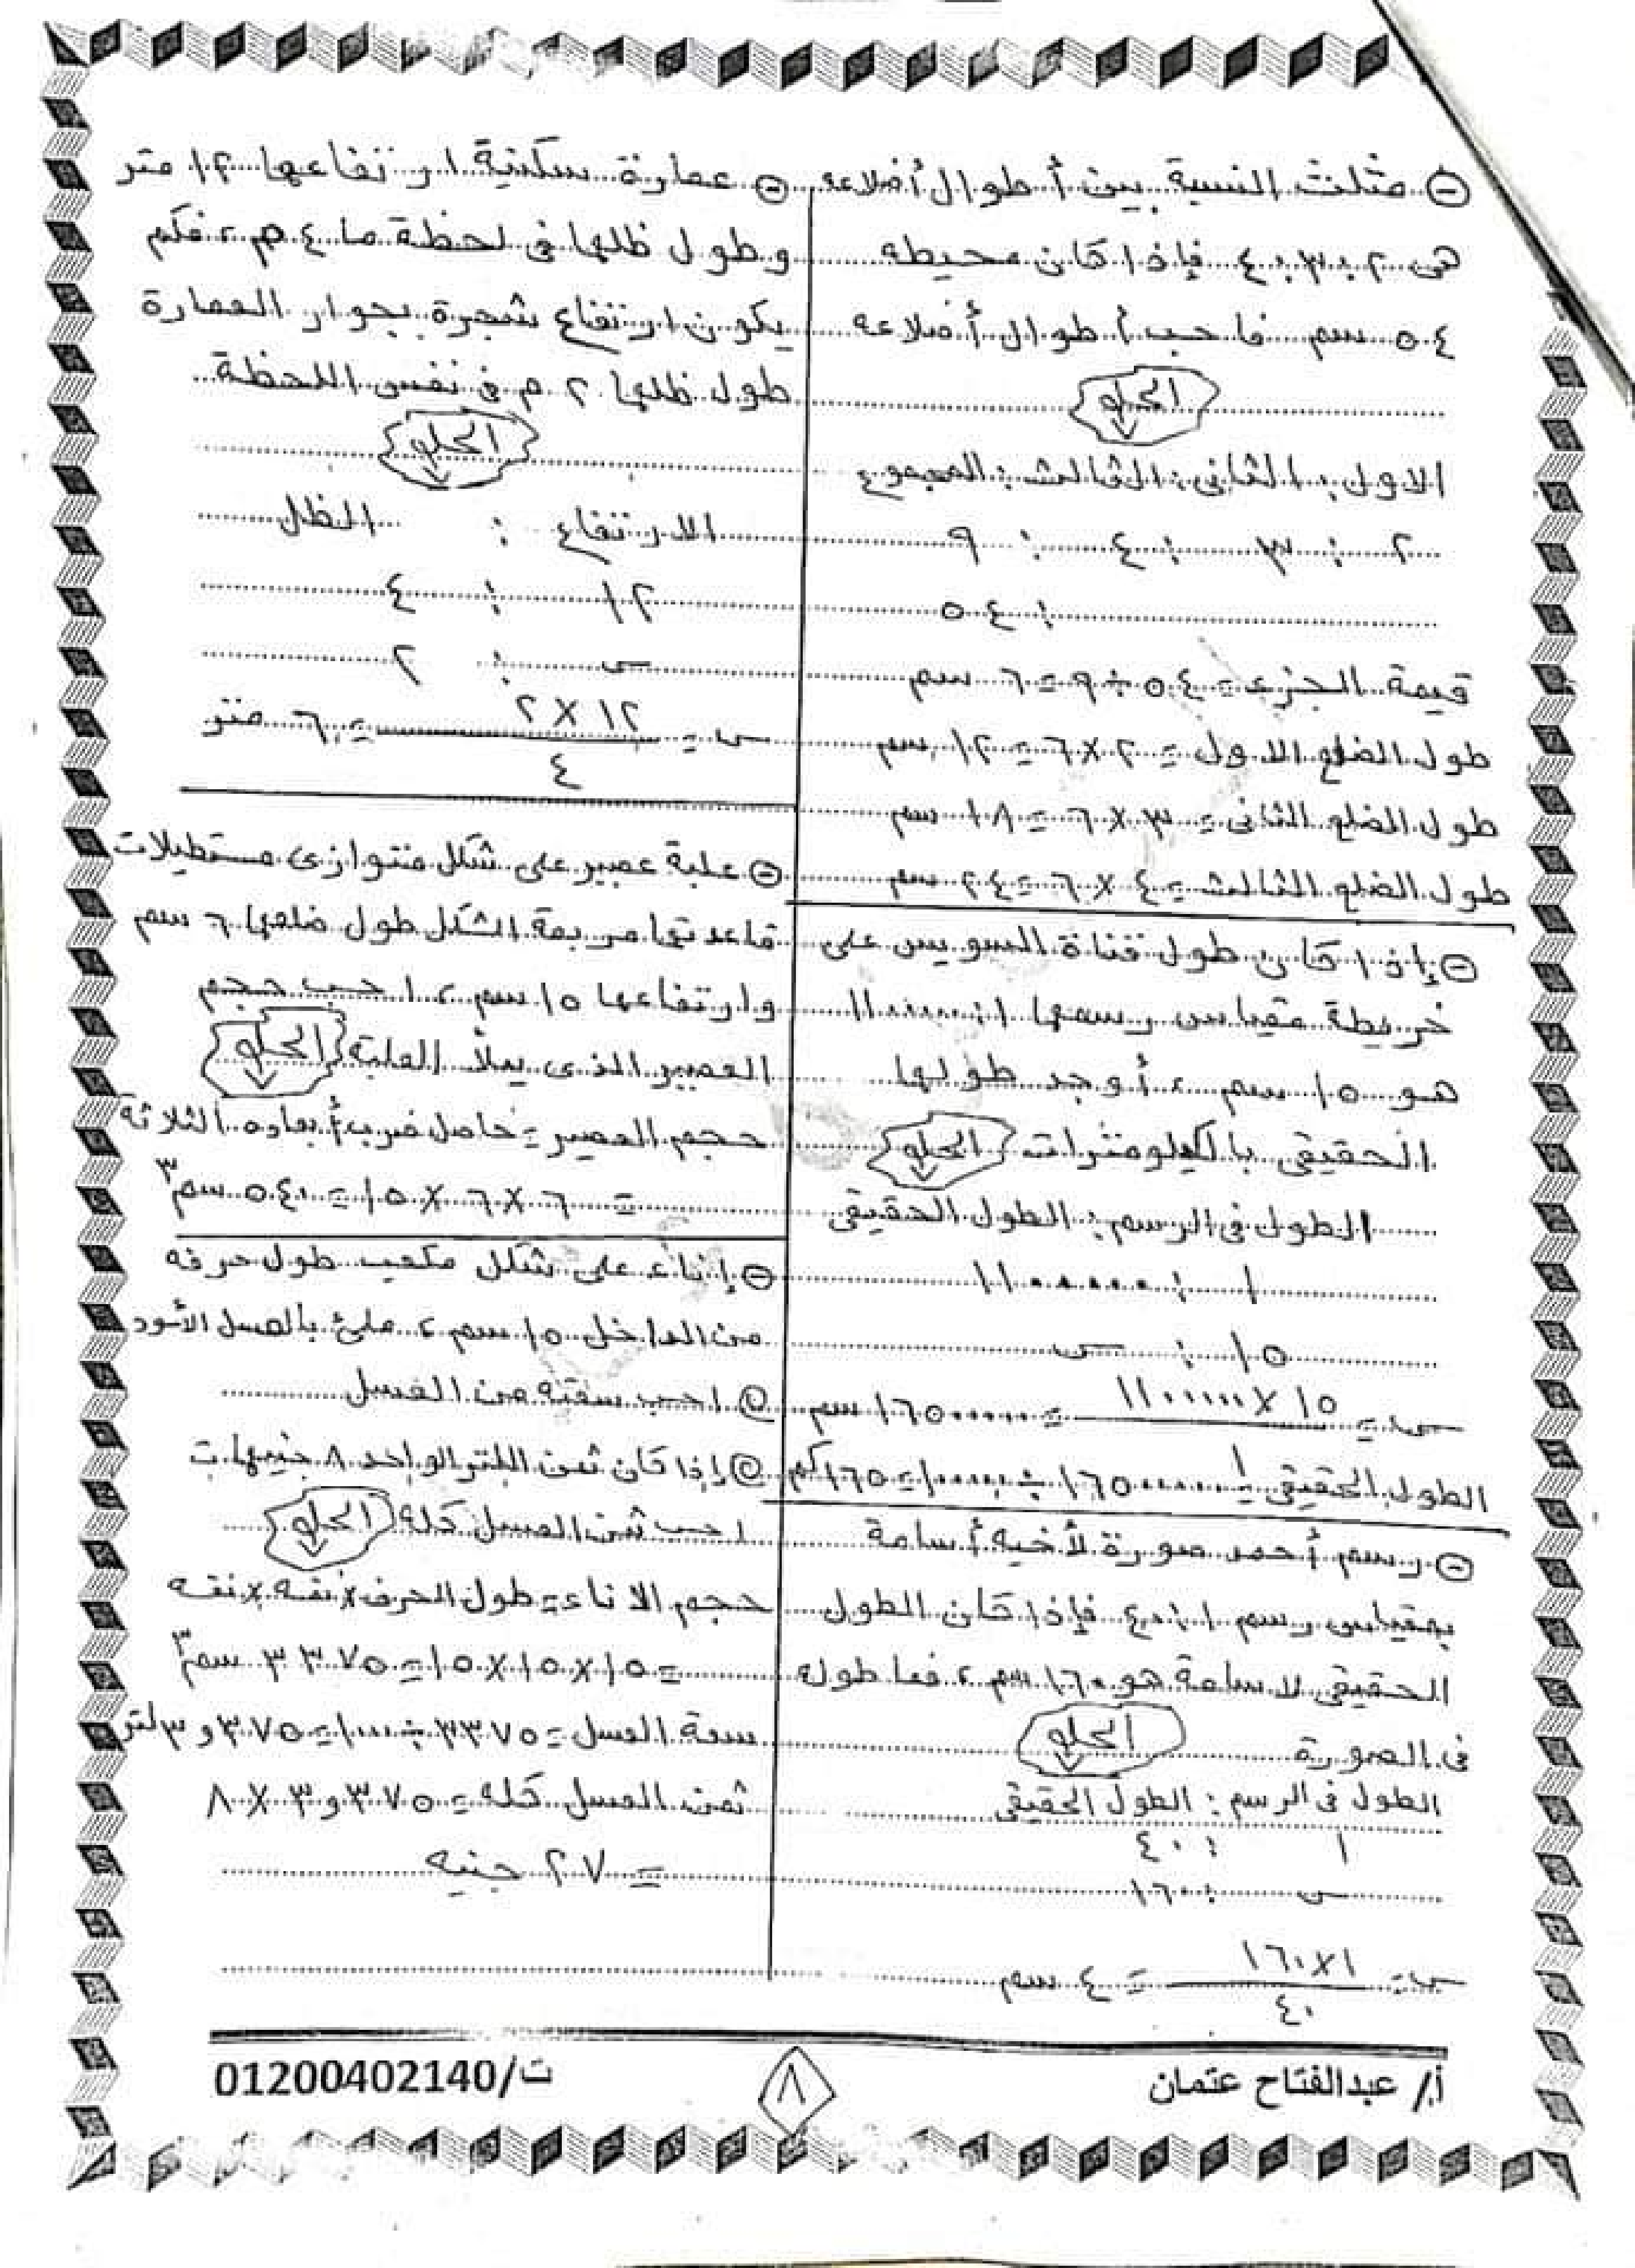 مثلث النسبة بين أطوال أضلاعه
هى ٢ : ٣ : ٤ فإذا كان محيطه
٥٤ سم فاحسب أطوال أضلاعه
الحلو
الاول : الثانى : الثالث : المجموع
٢ : ٣ : ٤ : ٩
: ٥٤
قيمة الجزء = ٥٤ ÷ ٩ = ٦ سم
طول الضلع الاول = ٢ × ٦ = ١٢ سم
طول الضلع الثانى = ٣ × ٦ = ١٨ سم
طول الضلع الثالث = ٤ × ٦ = ٢٤ سم
إذا كان طول قناة السويس على
خريطة مقياس رسمها ١ : ١١٠٠٠٠٠
هو ١٥ سم ، أوجد طولها
الحقيقى بالكيلومترات الحلو
الطول فى الرسم : الطول الحقيقى
١ : ١١٠٠٠٠٠
١٥ : س
س = ١٥ × ١١٠٠٠٠٠ = ١٦٥٠٠٠٠٠ سم
١
الطول الحقيقى = ١٦٥٠٠٠٠٠ ÷ ١٠٠٠٠٠ = ١٦٥ كم
رسم أحمد صورة لأخيه أسامة
بمقياس رسم ١ : ٤٠ فإذا كان الطول
الحقيقى لاسامة هو ١٦٠ سم ، فما طوله
فى الصورة الحلو
الطول فى الرسم : الطول الحقيقى
١ : ٤٠
س : ١٦٠
س = ١ × ١٦٠ = ٤ سم
٤٠
عمارة سكنية ارتفاعها ١٢ متر
وطول ظلها فى لحظة ما ٤ م ، فكم
يكون ارتفاع شجرة بجوار العمارة
طول ظلها ٢ م فى نفس اللحظة
الحلو
الارتفاع : الظل
١٢ : ٤
س : ٢
س = ١٢ × ٢ = ٦ متر
٤
علبة عصير على شكل متوازى مستطيلات
قاعدتها مربعة الشكل طول ضلعها ٦ سم
وارتفاعها ١٥ سم ، احسب حجم
العصير الذى يملأ العلبة الحلو
حجم العصير = حاصل ضرب أبعاده الثلاثة
= ٦ × ٦ × ١٥ = ٥٤٠ سم٣
إناء على شكل مكعب طول حرفه
من الداخل ١٥ سم ، ملئ بالعسل الأسود
احسب سعته من العسل
إذا كان ثمن اللتر الواحد ٨ جنيهات
احسب ثمن العسل كله الحلو
حجم الاناء = طول الحرف × نفسه × نفسه
= ١٥ × ١٥ × ١٥ = ٣٣٧٥ سم٣
سعة العسل = ٣٣٧٥ ÷ ١٠٠٠ = ٣٧٥و٣ لتر
ثمن العسل كله = ٣٧٥و٣ × ٨
= ٢٧ جنيه
أ/ عبدالفتاح عتمان
٨
ت/01200402140